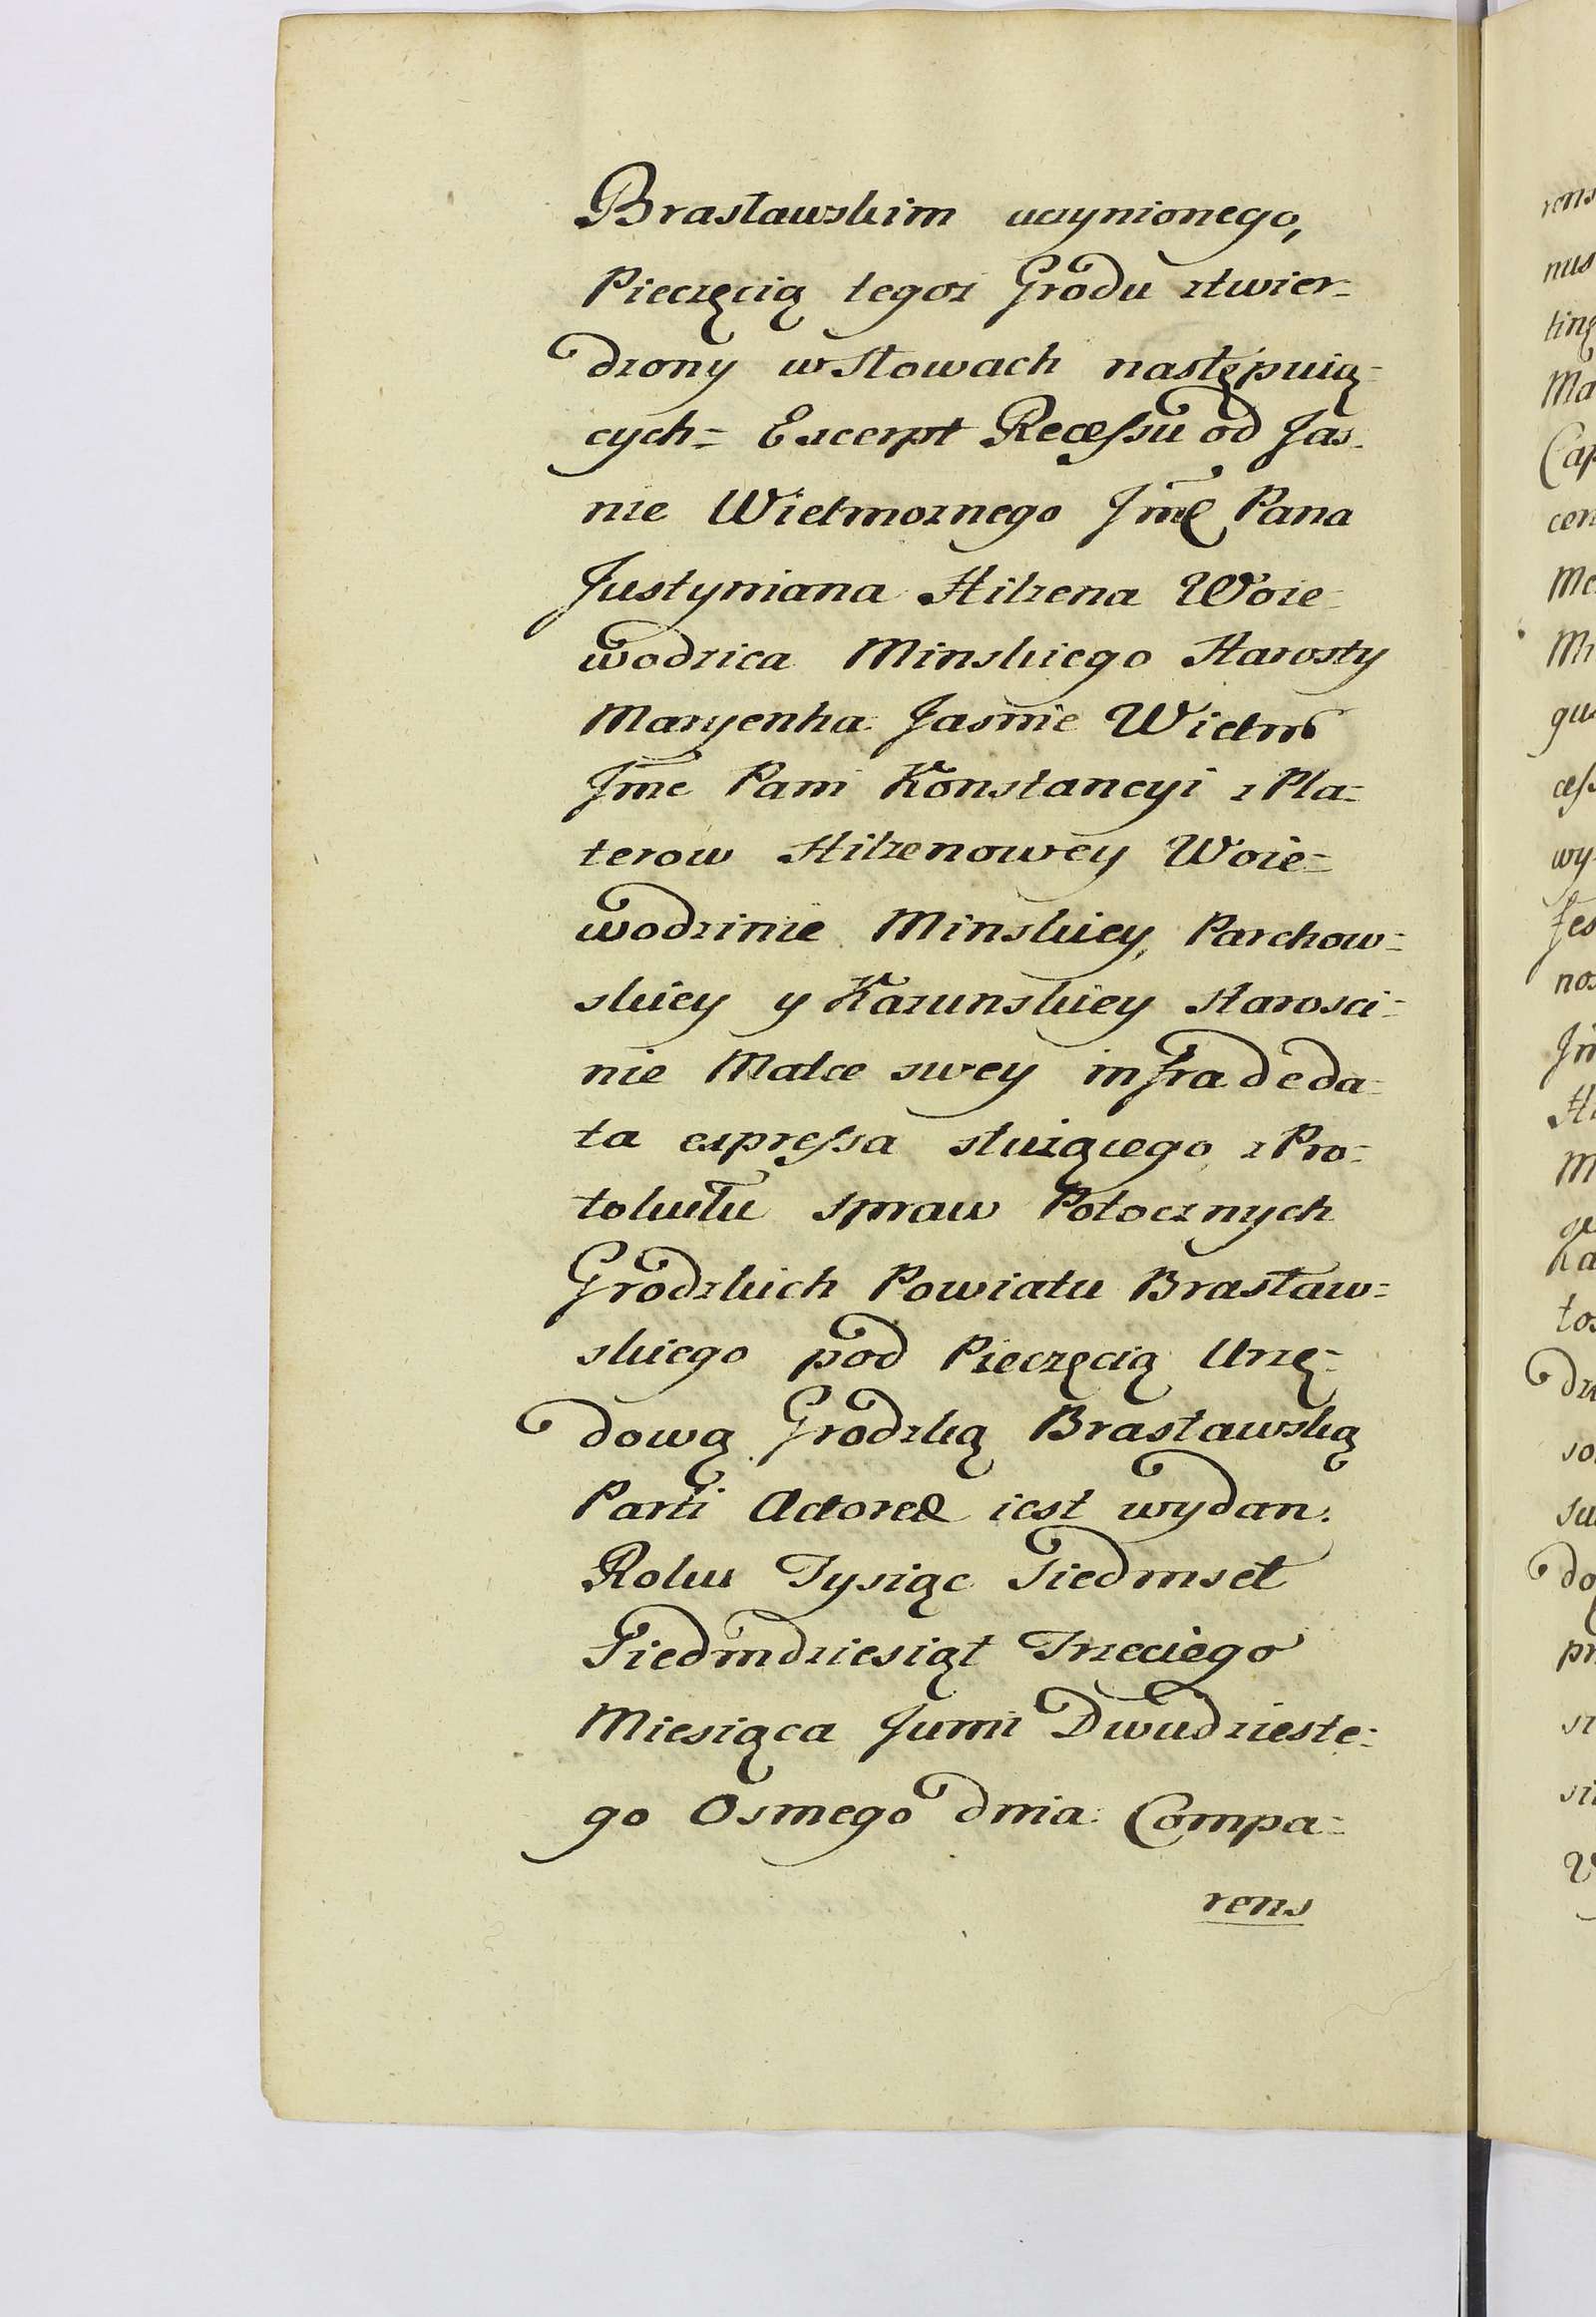 Brasławskim uczynionego,
Pieczęcią tegoz Grodu ztwier=
dzony w Słowach następuią=
cych= Excerpt Recessu od Jas=
nie Wielmoznego Jmć Pana
Justyniana Hilzena Woie=
wodzica Minskiego Starosty
Maryenha: Jasnie Wielmo
Jmc Pani Konstancyi z Pla=
terow Hilzenowey Woie=
wodzinie Minskiey, Parchow=
skiey y Kazunskiey Starosci=
nie Matce swey infra de da=
ta expressa służącego z Pro=
tokułu spraw Potocznych
Grodzkich Powiatu Brasław=
skiego pod Pieczęcią Urzę=
dową Grodzką Brasławską
Parti Actoreæ iest wydan.
Roku Tysiąc Siedmset
Siedmdziesiąt Trzeciego
Miesiąca Junii Dwudzieste=
go Osmego dnia: Compa=
rens